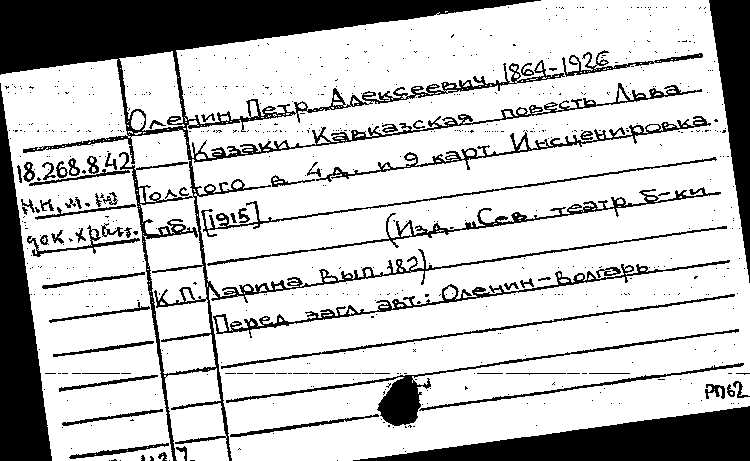 Оленин, Петр Алексеевич, 1864-1926
18.268.8.42 Казаки. Кавказская повесть Льва
н.н, м. но Толстого в 4 д. и 9 карт. Инсценировка.
док. хран. Спб., [1915].
(Изд. "Сев. театр. б-ки
К.П. Ларина. Вып. 182).
Перед загл. авт.: Оленин-Волгарь.
РП62